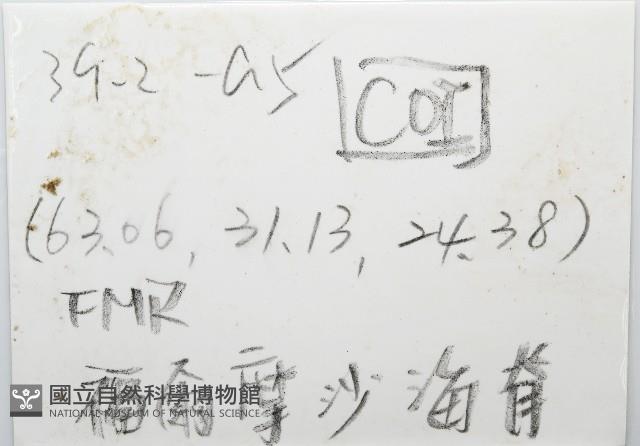 39-2 -a5 COI
(63.06, 31.13, 24.38)
FMR
福爾摩沙海
國立自然科學博物館
NATIONAL MUSEUM OF NATURAL SCIENCE